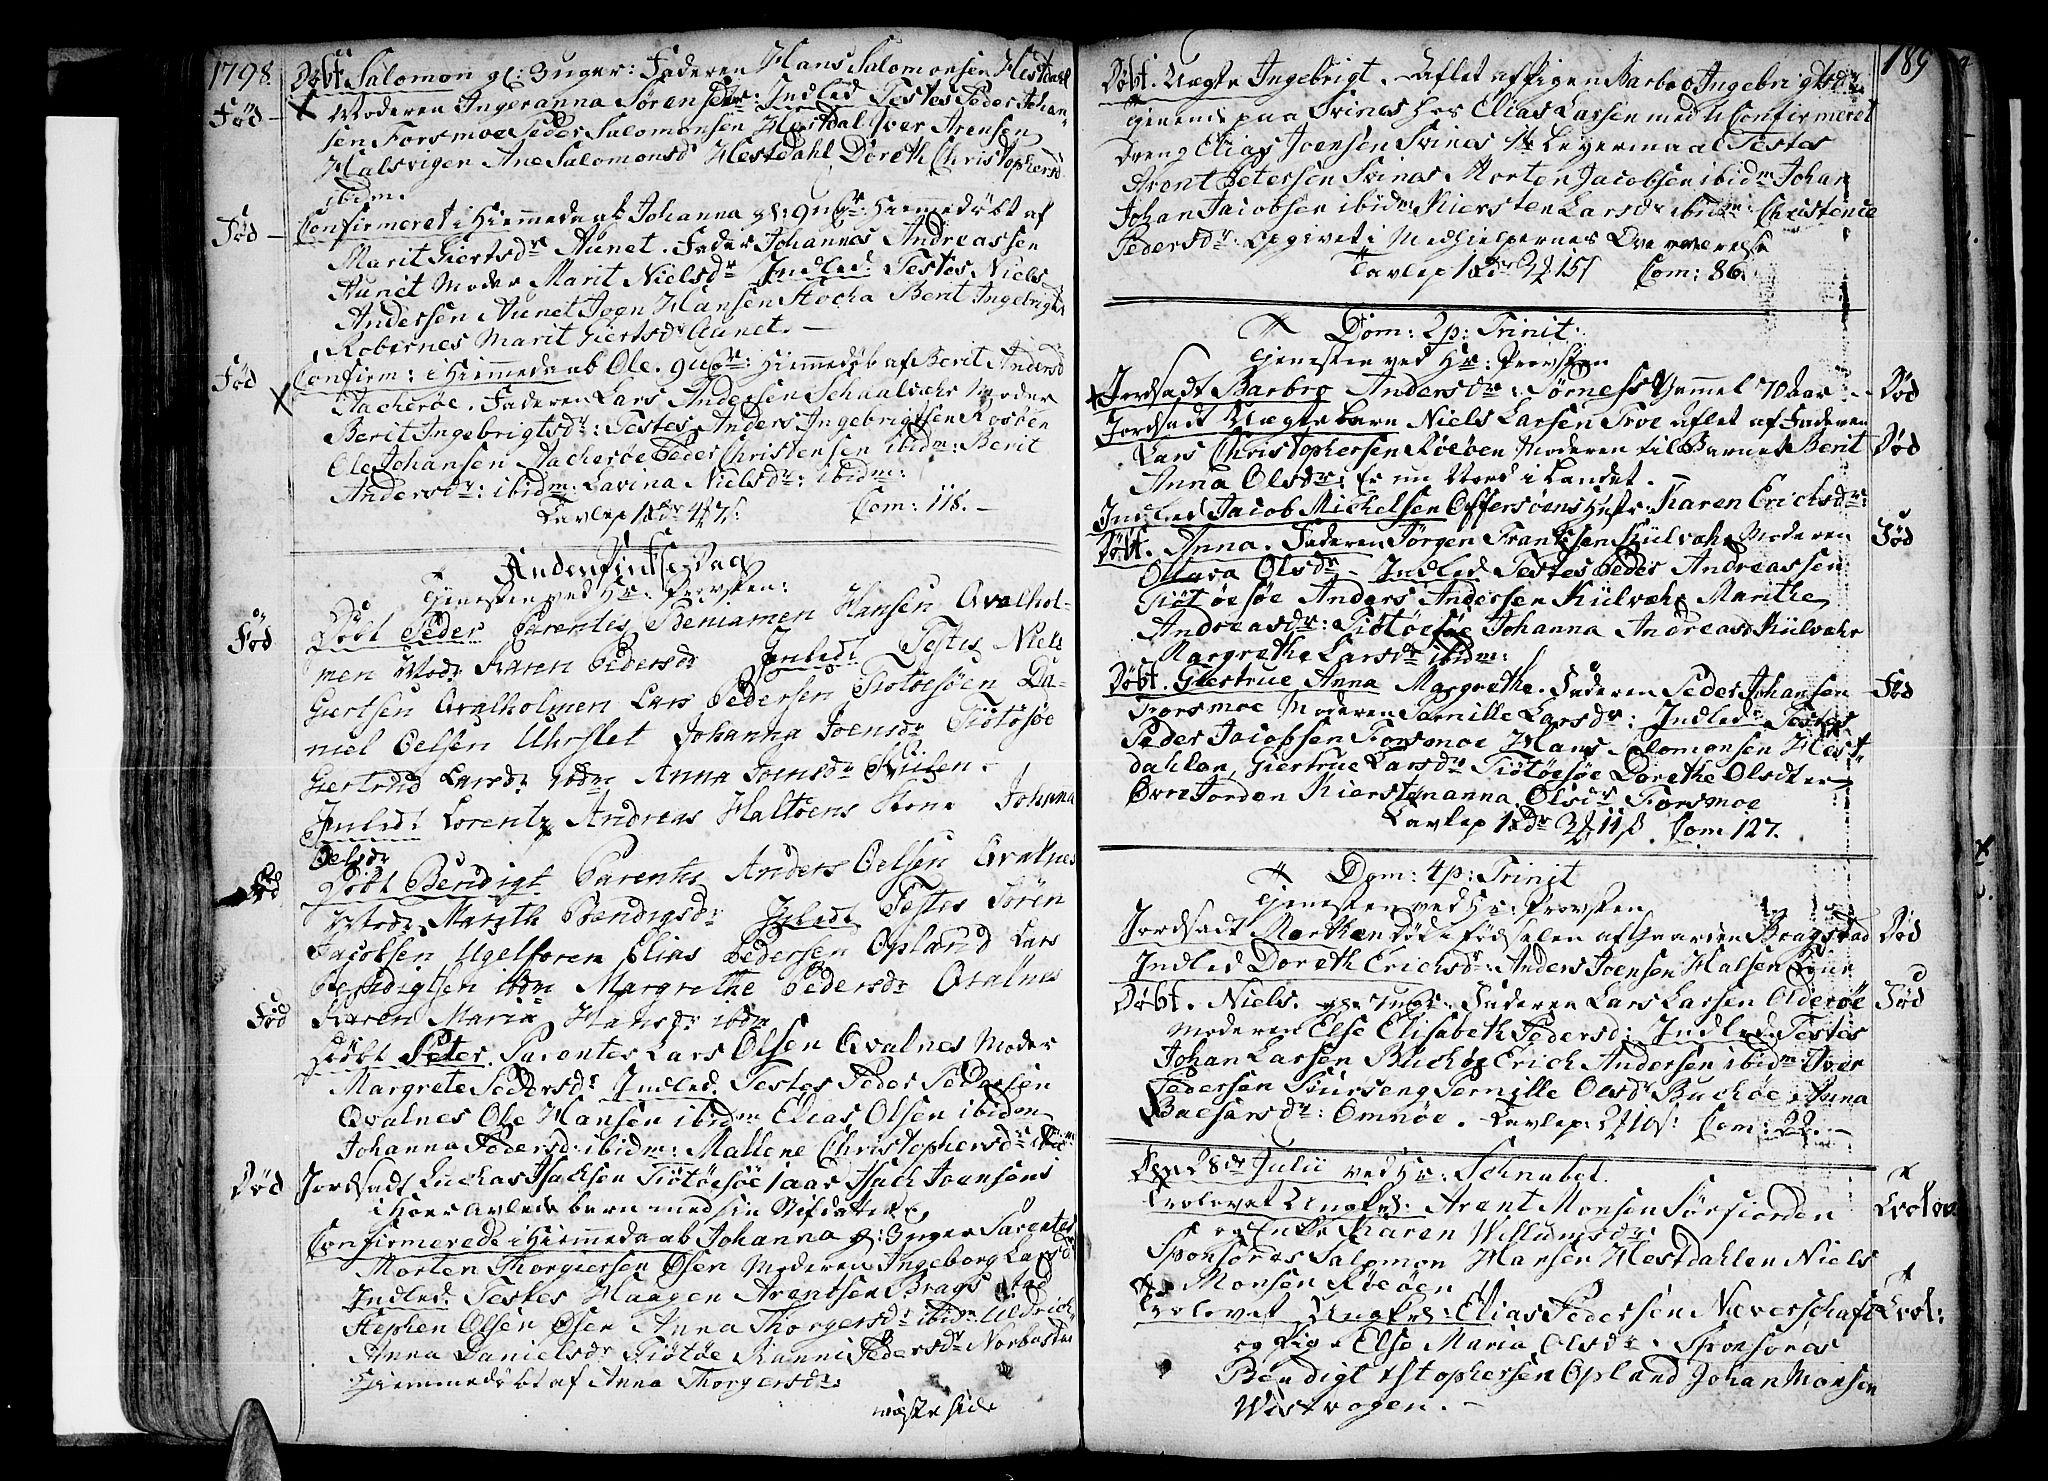 1798.
Døbt Salomon gl: 3uger: Faderen Hans Salomonsen Hestdahl
Fød Moderen Ingeranna Sørensdr: Indled Testes Peder Johan-
sen Forsmoe Peder Salomonsen Hestdal Iver Arensen
Halsvigen Ane Salomonsd Hestdahl Doreth Christophersd
ibidm.
Fød Confirmeret i Hiemmedaab Johanna gl: 9ugr: Hiemedøbt af
Marit Giertsdr Aunet. Fader Johannes Andreassen
Aunet Moder Marit Nielsdr Indled: Testes Niels
Andersen Aunet Joen Hansen Stocha Berit Ingebrigtsd
Robernes Marit Giertsdr Aunet.
Fød Confirm: i Hiemmedaab Ole. 9ugr: Hiemmedøb af Berit Andersd
Aacherøe. Faderen Lars Andersen Schaalvahr Moder
Berit Ingebrigtsdr: Testes Anders Ingebrigtsen Rosøen
Ole Johansen Aacherøe Peder Christensen ibidm: Berit
Andersdr: ibidm: Lavina Nielsdr: ibidm:
Tavlep 1rdr 4# 7s. Com: 118.
Anden Pintsedag
Tjenesten ved Hr: Provsten:
Fød Døbt Peder Parentes Beniamen Hansen Qvalhol-
men Modr Karen Pedersdr Inledt Testes Niels
Giertsen Qvalholmen Lars Pedersen Tiøtøesøen Da-
niel Oelsen Uhrflet Johanna Joensdr Tiøtøsøe
Giertrud Larsdr ibdm Anna Joensdr Kuulen.
Inledt Lorentz Andreas Haltøens Kone Johanna
Oelsdr
Fød Døbt Bendigt Parentes Anders Oelsen Qvalnes
Modr Marith Bendigsdr Inledt Testes Søren
Jacobsen Ugelforen Elias Pedersen Opland Lars
Bendigtsen ibdm Margrethe Pedersdr Qvalnes
Fød Karen Maria Hansdr ibdm
Døbt Peter. Parentes Lars Olsen Qvalnes Moder
Margrete Pedersdr Indled Testes Peder Pedersen
Qvalnes Ole Hansen ibidm Elias Olsen ibidm
Johanna Pedersd: ibidm: Mallene Christophersdr ibidm
Død Jordsadt Luchas Isachsen Tiøtøesøe 1aar Isach Joensens
i Hoer avlede barn med sin Stifdatter
Confirmerede i Hiemmedaab Johanna gl: 3uger Parentes
Morten Thorgiersen Øsen Moderen Ingeborg Larsdr
Indled Testes Haagen Arentsen Bragstad
Stephen Olsen Øsen Anna Thorgersdr ibidm Uldrich
Anna Danielsdr Tiøtøe Kanni Pedersdr Norbostad
Hiemmedøbt af Anna Thorgersdr:
næste side
189
Døbt. Uægte Ingebrigt. Aflet af Pigen Barbro Ingebrigtsdr
tjenende paa Svines hos Elias Larsen med U Confirmeret
Dreng Elias Joensen Svines 1te Leyermaal Testes
Arent Petersen Svines Morten Jacobsen ibidm Johan
Johan Jacobsen ibidm Kiersten Larsdr ibidm: Christence
Pedersdr: Opgivet i Medhielpernes Overværelse
Tavlep 1rdr 2# 15s Com: 86.
Dom: 2 p: Trinit:
Tjenesten ved Hr: Provsten
Jordsadt Barbro Andersdr: Sørness gammel 70 aar Død
Jordsadt Uægte barn Niels Larsen Troe aflet af Faderen
Lars Christophersen Røeøen Moderen til Barnet Berit Død
Anna Olsdr: Er nu Nord i Landet.
Indled Jacob Michelsen Offersøens Hustr: Karen Erichsdr:
Døbt. Anna. Faderen Jørgen Frantsen Kulvahr Moderen Fød
Olava Olsdr Indled Testes Peder Andreassen
Tiøtøesøe Anders Andersen Kulvahr Marithe
Andreasdr: Tiøtøesøe Johanna Andreasd Kulvahr
Margrethe Larsdr ibidm:
Døbt. Giertrue Anna Margrethe. Faderen Peder Johansen Fød
Forsmoe Moderen Pernille Larsdr: Indled: Testes
Peder Jacobsen Forsmoe Hans Salomonsen Hest-
dahlen, Giertrue Larsdr Tiøtøesøe Dorethe Olsdter
Øvre Jorden Kierstenanna Olsdr Forsmoe
Tavlep 1rdr 3# 11s. Com 127.
Dom: 4 p: Trinit
Tjenesten ved Hr: Provsten
Jordsadt Morthen død i fødselen af Gaarden Bragstad Død
Indled Doreth Erichsdr: Anders Joensen Halsen
Døbt. Niels. gl. 7ugr: Faderen Lars Larsen Olderøe Fød
Moderen Else Elisabeth Pedersd: Indled. Testes
Johan Larsen Buchøe Erich Andersen ibidm Iver
Pedersen Pernille Olsdr Buchøe Anna
Baltzarsdr: Omnøe. Tavlep: 2# 10s: Com: 22.
Den 28de Julii ved Hr: Schnabel.
Trolovet Ungkl: Arent Monsen Sørfiorden Trolov
og Enke Karen Willumsdr:
Sponsores Salomon Hansen Hestdahlen Niels
Monsen Røeøen
Trolovet Ungkl: Elias Pedersen Næverschaft Trol:
og Pige Else Maria Olsdr. Sponsores
Bendigt Christophersen Opland Johan Monsen
Wistvogen.